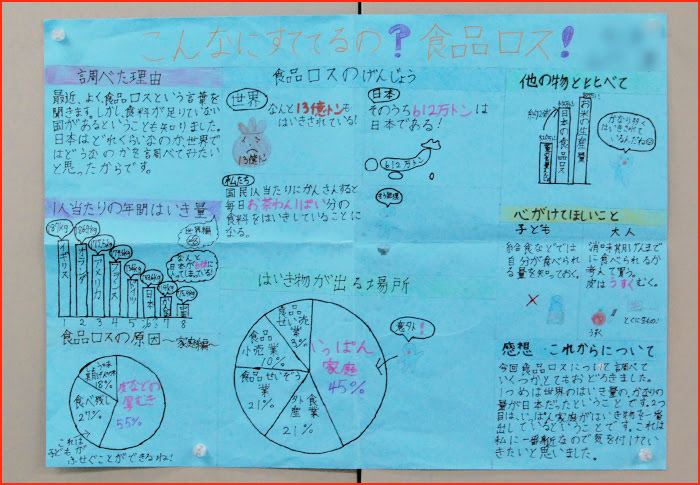 こんなにすててるの?食品ロス!
調べた理由
最近、よく食品ロスという言葉を
聞きます。しかし、食料が足りていない
国があるということも知りました。
日本はどれくらいなのか、世界で
はどうなのかを調べてみたい
と思ったからです。
食品ロスのげんじょう
世界
なんと13億トンも
はいきされている!
13億トン
日本
そのうち612万トンは
日本である!
612万トン
私たち
国民1人当たりにかんさんすると
毎日お茶わん1ぱい分の
食料をはいきしていることに
なる。
他の物と比べて
日本の食品ロス
お米の生産量
かなり多く
はいきされて
いるんだね
1人当たりの年間はいき量
世界編
イギリス
オランダ
アメリカ
フランス
ドイツ
日本
なんと
日本が6位に
入ってしまっている!
2 3 4 5 6 7 8
食品ロスの原因〜家庭編〜
皮などの
厚むき
55%
食べ残し
27%
18%
これは
子どもが
ふせぐことができるね!
はいき物が出る場所
いっぱん
家庭
45%
外食
産業
21%
食品せいぞう
業
21%
食品
小売業
10%
食品
3%
意外!
心がけてほしいこと
子ども
給食などでは
自分が食べられ
る量を知っておく。
大人
消味期げんまで
に食べられるか
考えて買う。
皮はうすくむく。
感想・これからについて
今回食品ロスについて調べて
いくつかとてもおどろきました。
1つめは世界のはいき量の、かなりの
量が日本だったということです。2つ
目は、いっぱん家庭がはいき物を一番
出しているということです。これは
私に一番身近なので気を付けてい
きたいと思いました。